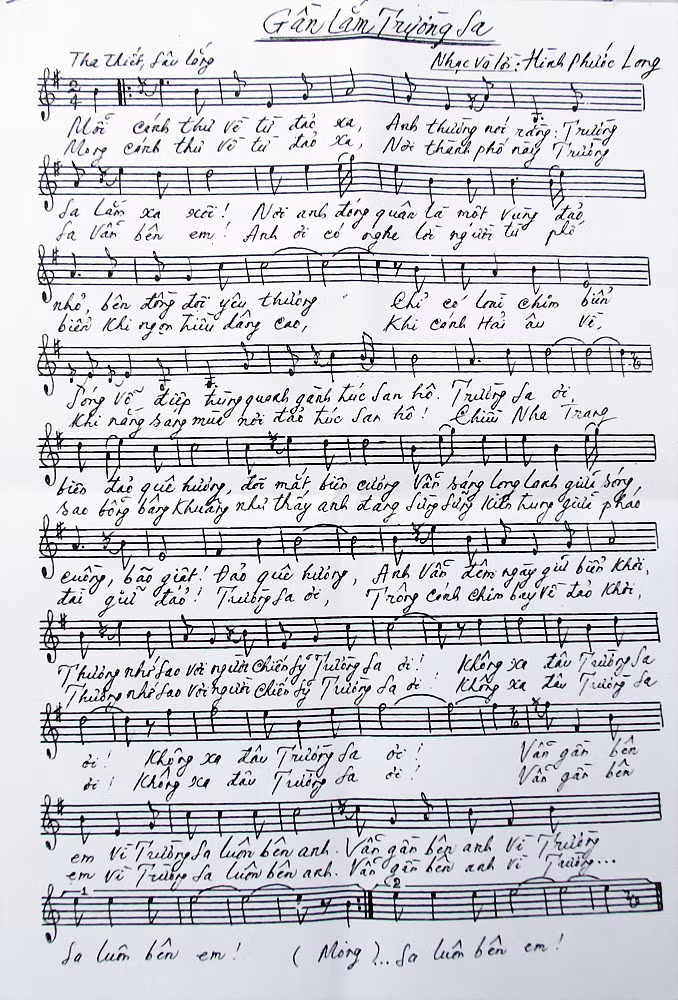 Gần Lắm Trường Sa
Tha thiết, sâu lắng
Nhạc và lời: Hình Phước Long
2
4
Mỗi cánh thư về từ đảo xa, Anh thường nói rằng: Trường
Mong cánh thư về từ đảo xa, Nơi thành phố này Trường
Sa lắm xa xôi! Nơi anh đóng quân là một vùng đảo
Sa vẫn bên em! Anh ơi có nghe lời người từ phố
nhỏ, bên đồng đội yêu thương Chỉ có loài chim biển
biển khi ngọn triều dâng cao, Khi cánh Hải âu về,
Sóng vỗ điệp trùng quanh gành trúc san hô. Trường Sa ơi,
Khi nắng sang mùa nơi đảo trúc san hô! Chiều Nha Trang
biển đảo quê hương, đôi mắt biên cương vẫn sáng long lanh giữa sóng
sao bỗng bâng khuâng như thấy anh đang sừng sững hiên ngang giữa pháo
cuồng, bão giật! Đảo quê hương, Anh vẫn đêm ngày giữ biển khơi,
đài giữ đảo! Trường Sa ơi, Trông cánh chim bay về đảo khơi,
Thương nhớ sao với người chiến sỹ Trường Sa ơi! Không xa đâu Trường Sa
Thương nhớ sao với người chiến sỹ Trường Sa ơi! Không xa đâu Trường Sa
ơi! Không xa đâu Trường Sa ơi! Vẫn gần bên
ơi! Không xa đâu Trường Sa ơi! Vẫn gần bên
em vì Trường Sa luôn bên anh. Vẫn gần bên anh vì Trường
em vì Trường Sa luôn bên anh. Vẫn gần bên anh vì Trường...
1 2
Sa luôn bên em! (Mong)... Sa luôn bên em!